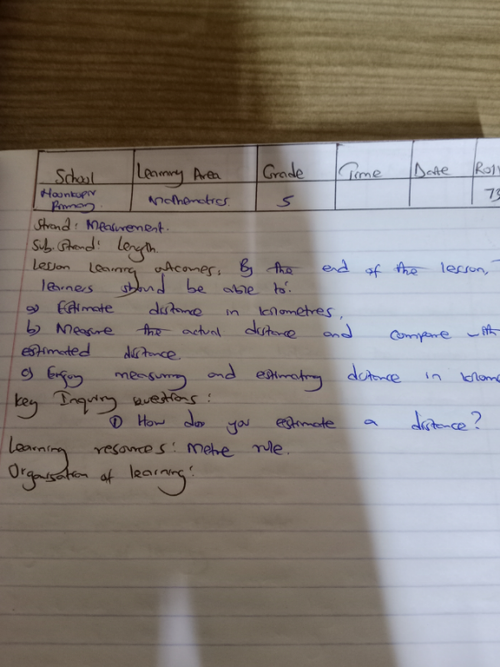 School Learning Area Grade Time Date Roll
Primary Mathematics 5 73
Strand: Measurement.
Sub. Strand: Length.
Lesson Learning outcomes, By the end of the lesson,
learners should be able to:
a) Estimate distance in kilometres,
b) Measure the actual distance and compare with
estimated distance.
c) Enjoy measuring and estimating distance in
Key Inquiry questions:
① How do you estimate a distance?
Learning resources: Metre rule.
Organisation of learning: